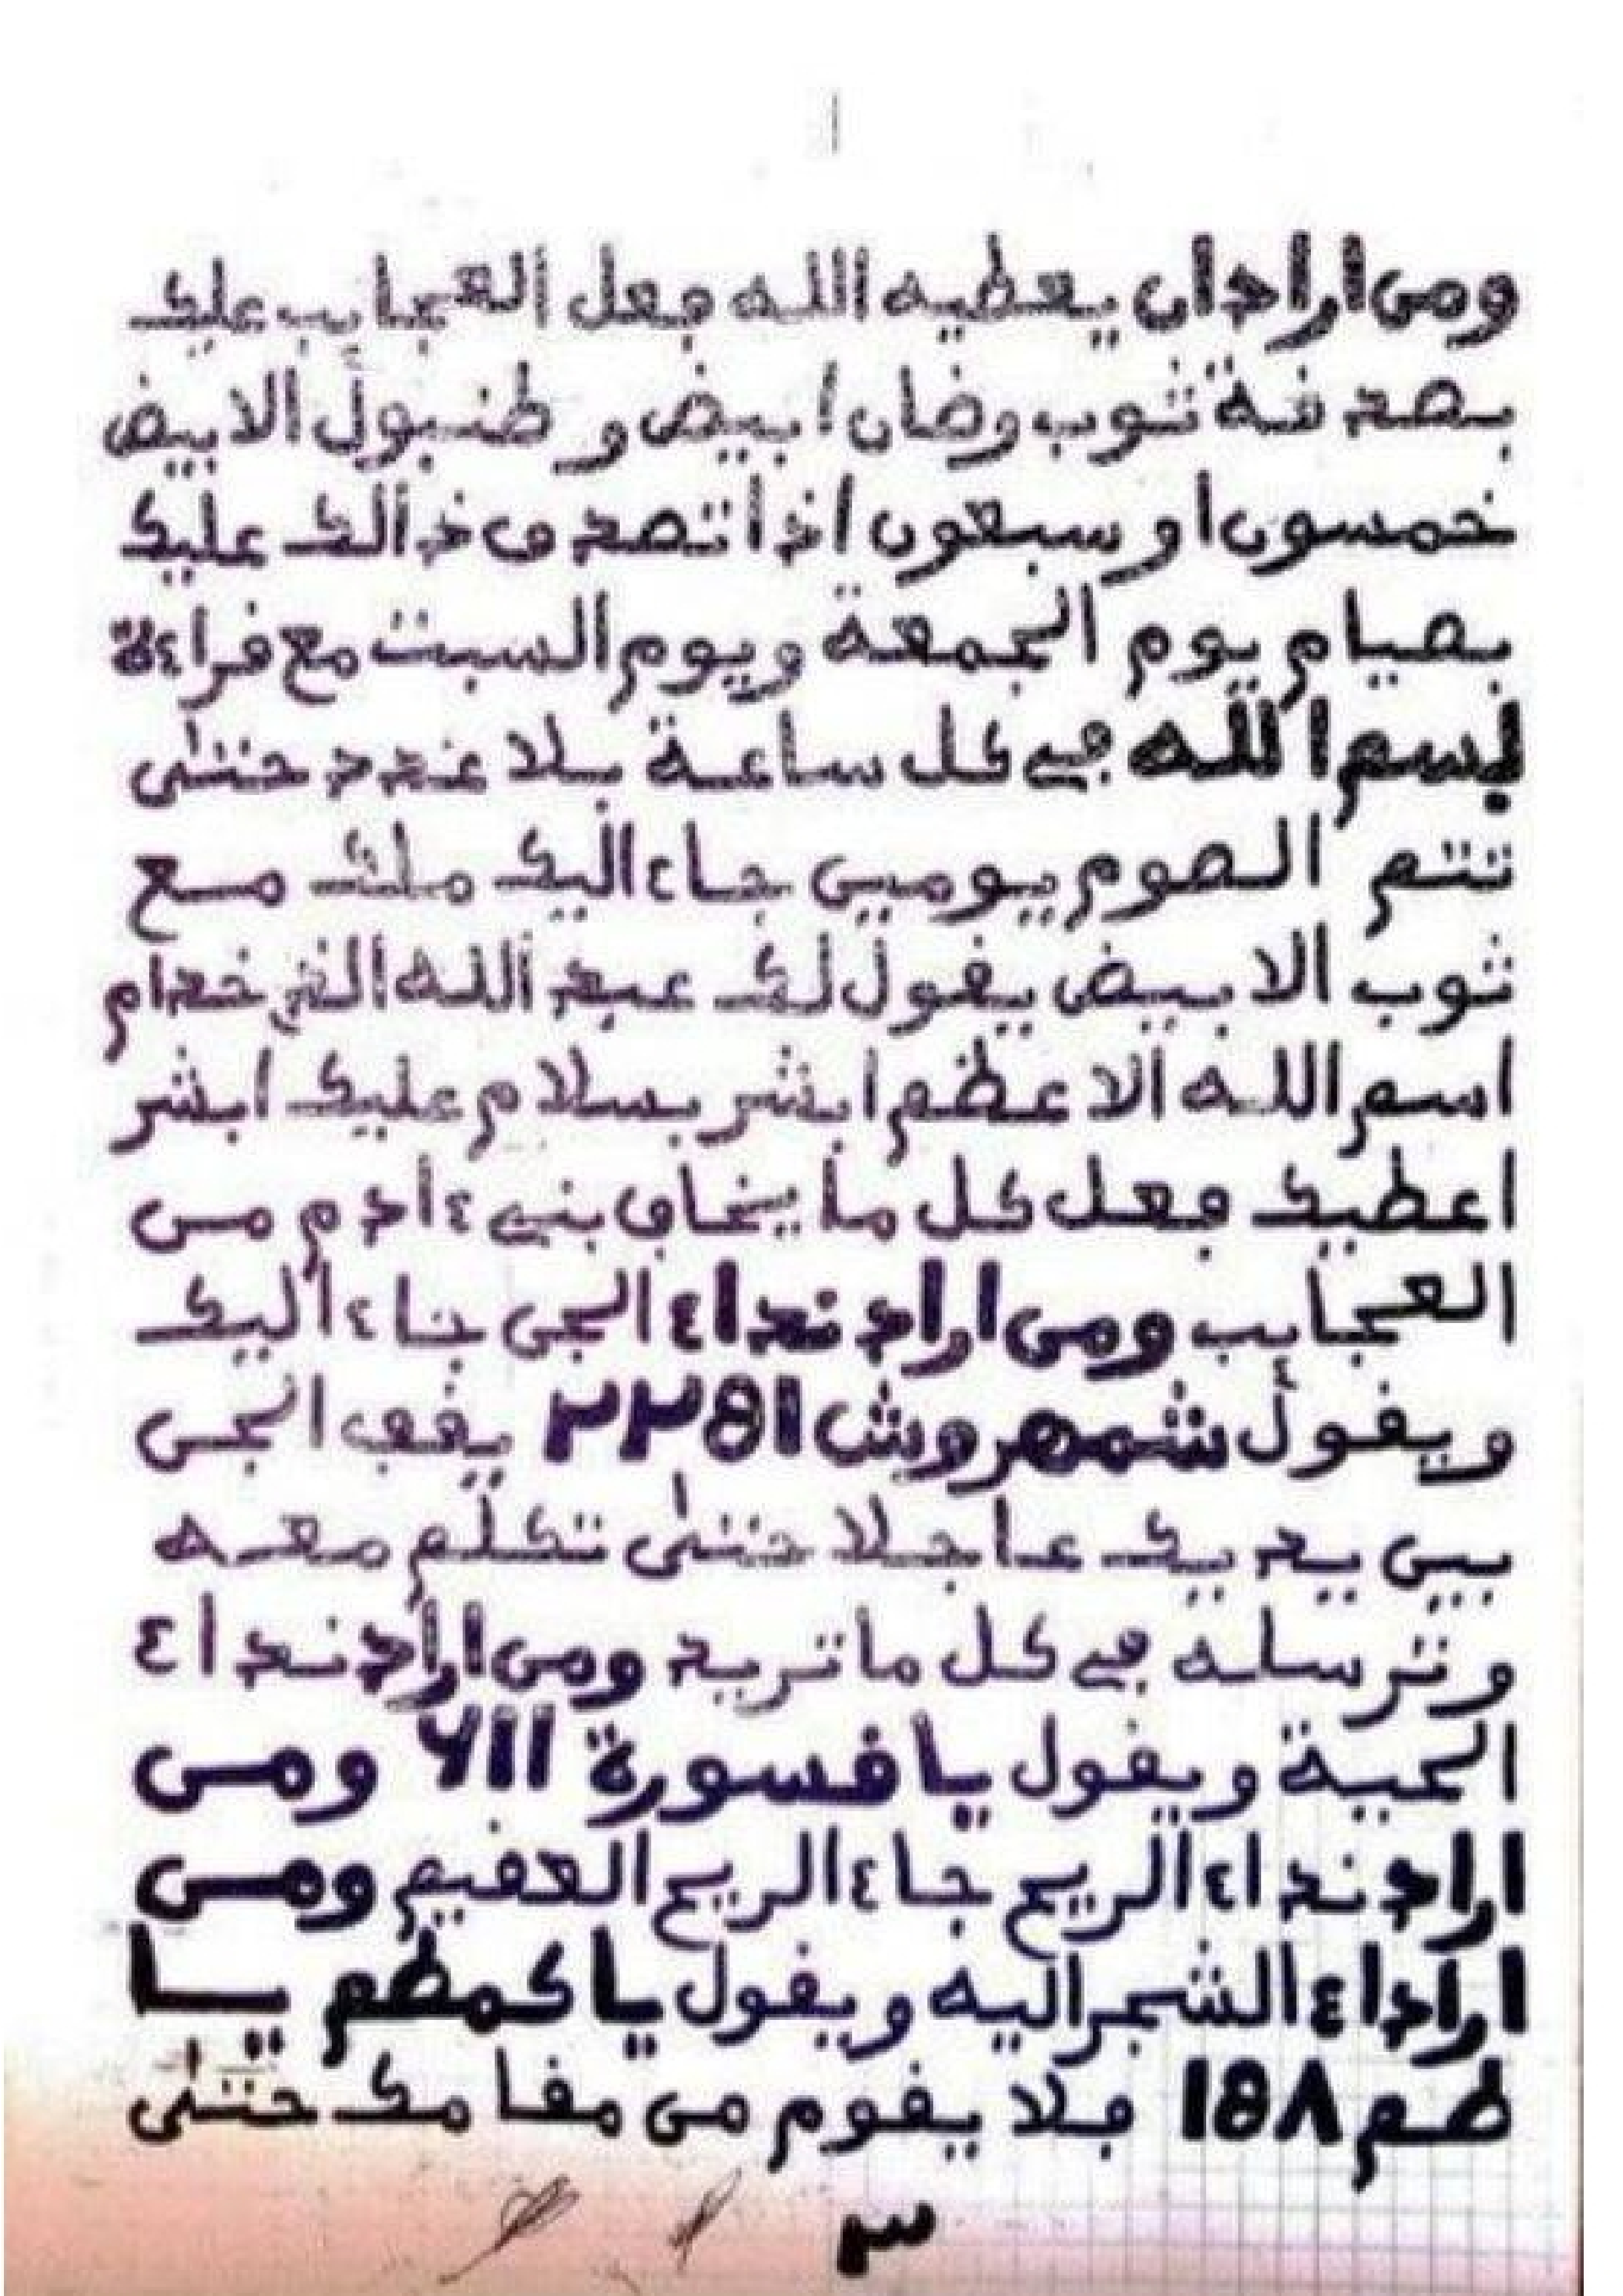 ومن اراد ان يعطيه الله فعل العجايب عليك
بصدقة ثوب وضان ابيض و طنبول الابيض
خمسون او سبعون اذا تصدق ذالك عليك
بصيام يوم الجمعة ويوم السبت مع قراءة
بسم الله في كل ساعة بلا عدد حتى
تتم الصوم يومين جاء اليك ملك مع
ثوب الابيض يقول لك عبد الله الذي خدام
اسم الله الاعظم ابشر بسلام عليك ابشر
اعطيك فعل كل ما يخاف بني ءادم من
العجايب ومن اراد نداء الجن جاء اليك
ويقول شمهروش ٢٢٥١ يقف الجن
بين يديك عاجلا حتى تكلم معه
وترسله في كل ما تريد ومن اراد نداء
الحية ويقول يا قسورة ٧١١ ومن
اراد نداء الريح جاء الريح العقيم ومن
اراد اء الشجر اليه ويقول يا كمطم يا
طم ١٥٨ فلا يقوم من مقامك حتى
٣